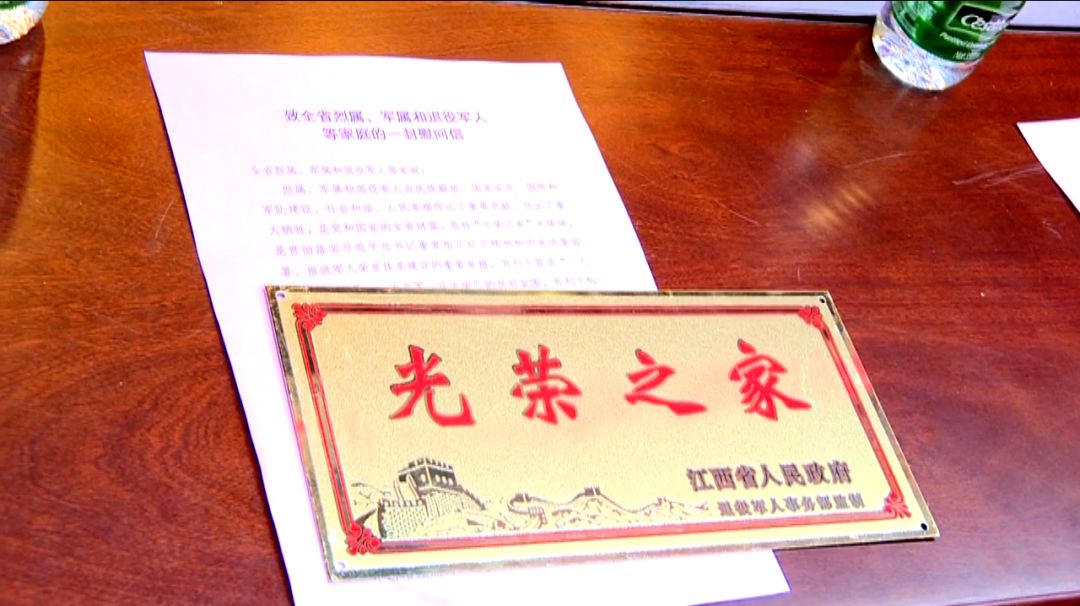 致全省烈属、军属和退役军人
等家庭的一封慰问信
全省烈属、军属和退役军人等家庭:
烈属、军属和退役军人为民族解放、国家安定、国防和
军队建设、社会和谐、人民幸福作出了重要贡献、付出了重
大牺牲,是党和国家的宝贵财富。悬挂“光荣之家”光荣牌,
是贯彻落实习近平总书记重要指示批示精神和中央决策部
署、推进军人荣誉体系建设的重要举措,有利于营造“一人
光荣之家
江西省人民政府
退役军人事务部监制